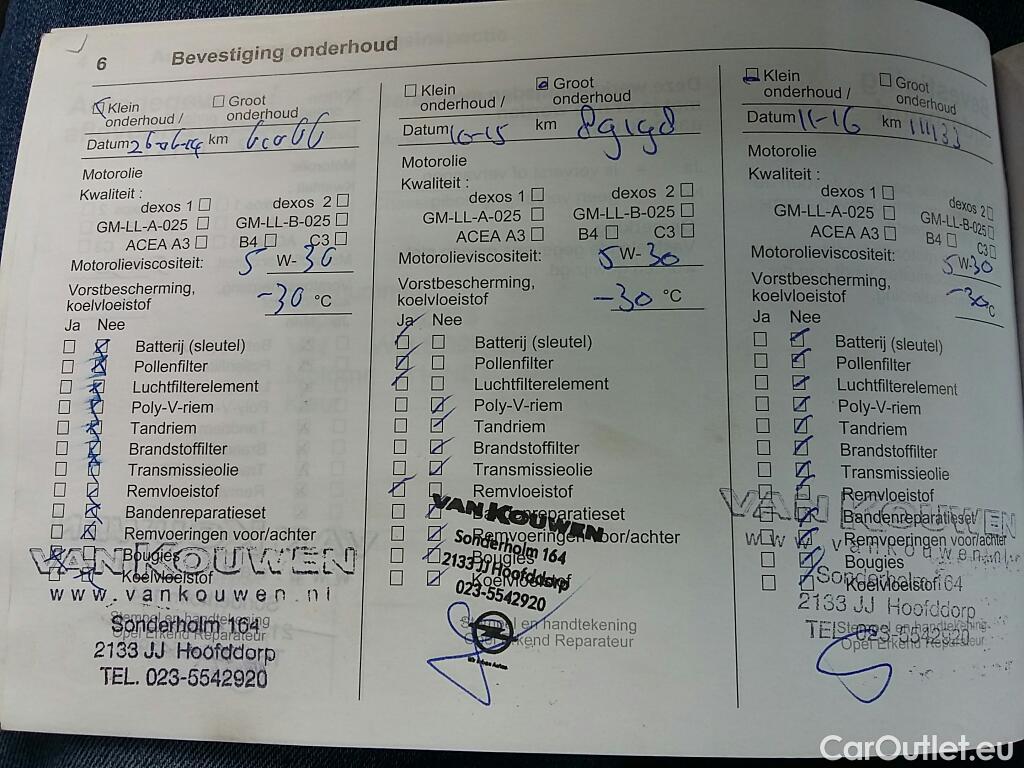 6 Bevestiging onderhoud
Klein onderhoud /
Groot onderhoud
Datum km
Motorolie
Kwaliteit :
dexos 1 dexos 2
GM-LL-A-025 GM-LL-B-025
ACEA A3 B4 C3
Motorolieviscositeit: 5 W-30
Vorstbescherming,
koelvloeistof -30 °C
Ja Nee
Batterij (sleutel)
Pollenfilter
Luchtfilterelement
Poly-V-riem
Tandriem
Brandstoffilter
Transmissieolie
Remvloeistof
Bandenreparatieset
Remvoeringen voor/achter
Bougies
Koelvloeistof
VAN KOUWEN
www.vankouwen.nl
Stempel en handtekening
Opel Erkend Reparateur
Sonderholm 164
2133 JJ Hoofddorp
TEL. 023-5542920
Klein onderhoud /
Groot onderhoud
Datum 10-15 km 89198
Motorolie
Kwaliteit :
dexos 1 dexos 2
GM-LL-A-025 GM-LL-B-025
ACEA A3 B4 C3
Motorolieviscositeit: 5 W-30
Vorstbescherming,
koelvloeistof -30 °C
Ja Nee
Batterij (sleutel)
Pollenfilter
Luchtfilterelement
Poly-V-riem
Tandriem
Brandstoffilter
Transmissieolie
Remvloeistof
Bandenreparatieset
Remvoeringen voor/achter
Bougies
Koelvloeistof
VAN KOUWEN
Sonderholm 164
2133 JJ Hoofddorp
023-5542920
Stempel en handtekening
Opel Erkend Reparateur
Klein onderhoud /
Groot onderhoud
Datum 11-16 km 111133
Motorolie
Kwaliteit :
dexos 1 dexos 2
GM-LL-A-025 GM-LL-B-025
ACEA A3 B4 C3
Motorolieviscositeit: 5 W-30
Vorstbescherming,
koelvloeistof -30 °C
Ja Nee
Batterij (sleutel)
Pollenfilter
Luchtfilterelement
Poly-V-riem
Tandriem
Brandstoffilter
Transmissieolie
Remvloeistof
Bandenreparatieset
Remvoeringen voor/achter
Bougies
Koelvloeistof
VAN KOUWEN
www.vankouwen.nl
Sonderholm 164
2133 JJ Hoofddorp
TEL. 023-5542920
Stempel en handtekening
Opel Erkend Reparateur
CarOutlet.eu